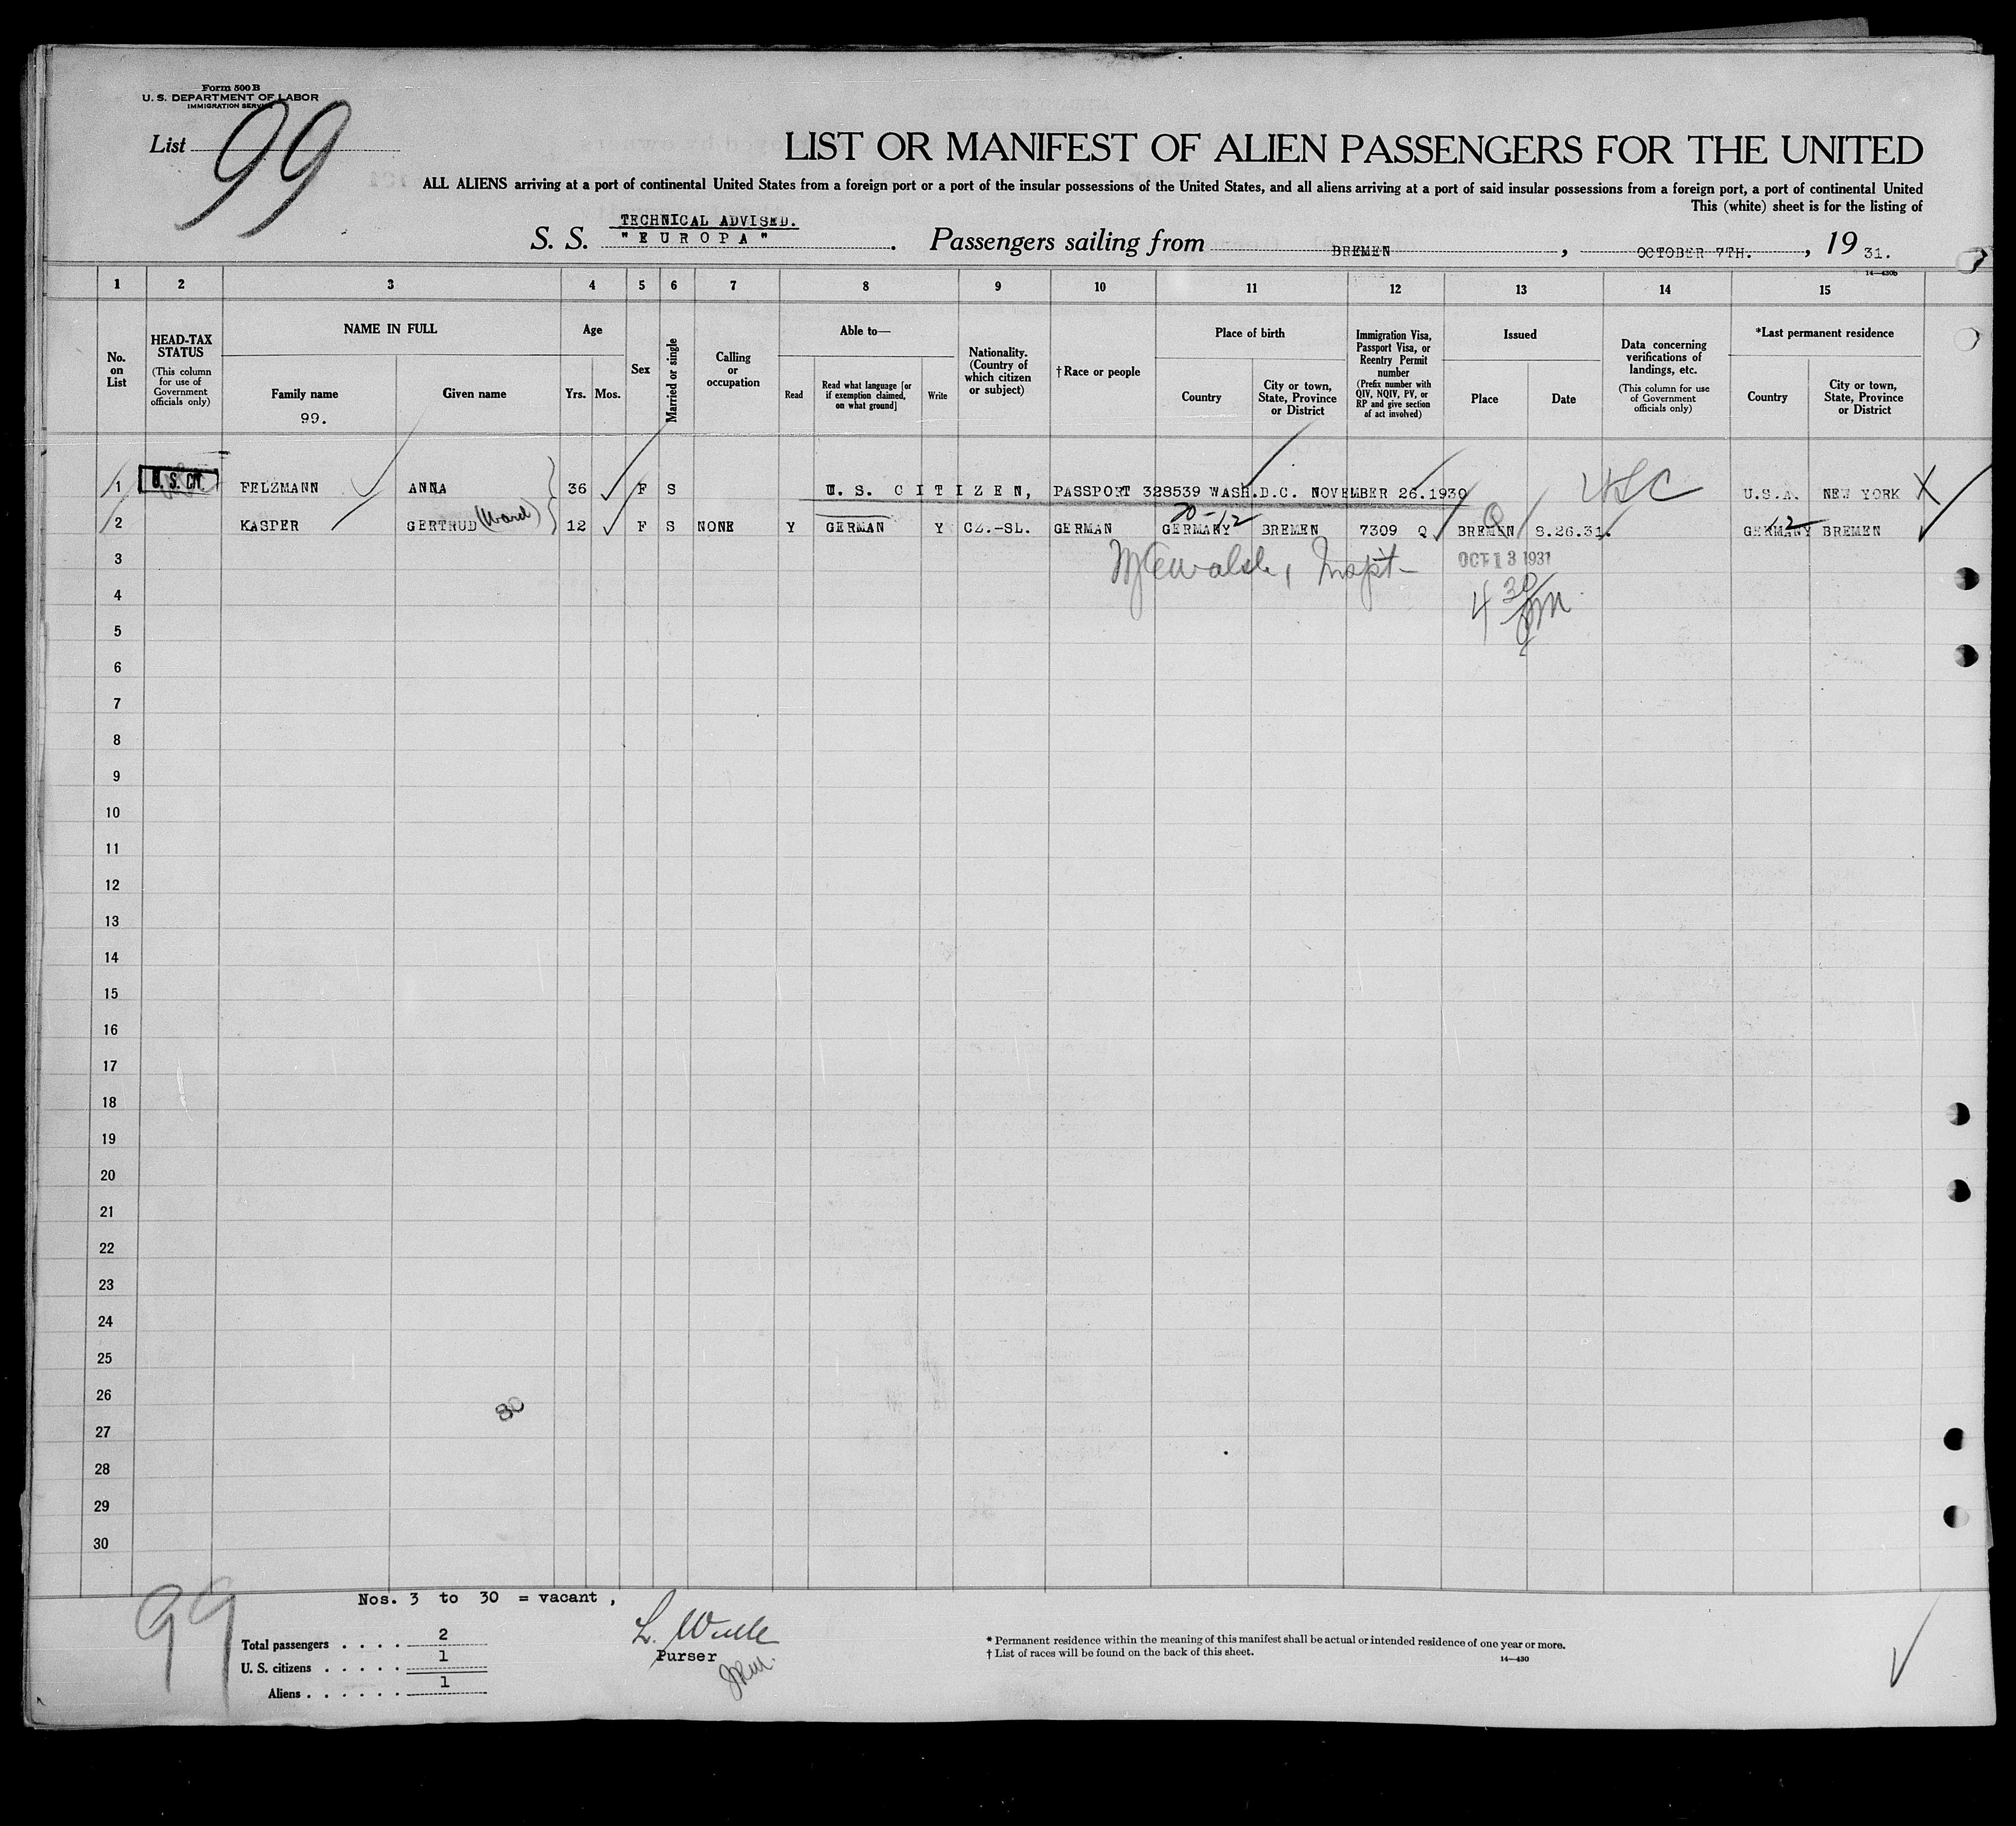 Form 500 B
U. S. DEPARTMENT OF LABOR
IMMIGRATION SERVICE
List 99
LIST OR MANIFEST OF ALIEN PASSENGERS FOR THE UNITED
ALL ALIENS arriving at a port of continental United States from a foreign port or a port of the insular possessions of the United States, and all aliens arriving at a port of said insular possessions from a foreign port, a port of continental United
This (white) sheet is for the listing of
TECHNICAL ADVISED.
S. S. "EUROPA". Passengers sailing from BREMEN, OCTOBER 7TH., 19 31.
14—430b
1 2 3 4 5 6 7 8 9 10 11 12 13 14 15
No. on List
HEAD-TAX STATUS
(This column for use of Government officials only)
NAME IN FULL
Family name
99.
Given name
Age
Yrs. Mos.
Sex
Married or single
Calling or occupation
Able to—
Read
Read what language [or if exemption claimed, on what ground]
Write
Nationality. (Country of which citizen or subject)
†Race or people
Place of birth
Country
City or town, State, Province or District
Immigration Visa, Passport Visa, or Reentry Permit number
(Prefix number with QIV, NQIV, PV, or RP and give section of act involved)
Issued
Place
Date
Data concerning verifications of landings, etc.
(This column for use of Government officials only)
*Last permanent residence
Country
City or town, State, Province or District
1 U. S. CIT. FELZMANN ANNA 36 F S U. S. CITIZEN, PASSPORT 328539 WASH.D.C. NOVEMBER 26.1930 USC U.S.A. NEW YORK X
20-12 Q 12
2 KASPER GERTRUD (Ward) 12 F S NONE Y GERMAN Y CZ.-SL. GERMAN GERMANY BREMEN 7309 Q BREMEN 8.26.31. GERMANY BREMEN
3 Inspt- OCT 13 1931
4 4 30 PM
5
6
7
8
9
10
11
12
13
14
15
16
17
18
19
20
21
22
23
24
25
26
30
27
28
29
30
99
Nos. 3 to 30 = vacant,
Total passengers . . . . 2
U. S. citizens . . . . . 1
Aliens . . . . . . 1
L.
Purser
* Permanent residence within the meaning of this manifest shall be actual or intended residence of one year or more.
† List of races will be found on the back of this sheet.
14—430